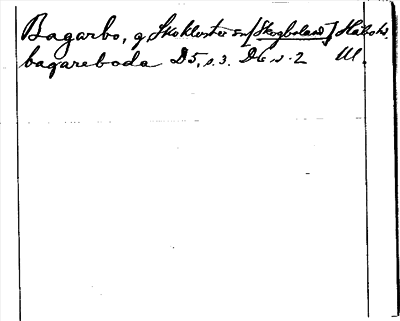 Bagarbo, g, Skokloster sn [Skogboland] Håbo h.
bagareboda D5, s. 3. D6 s. 2 Ul.